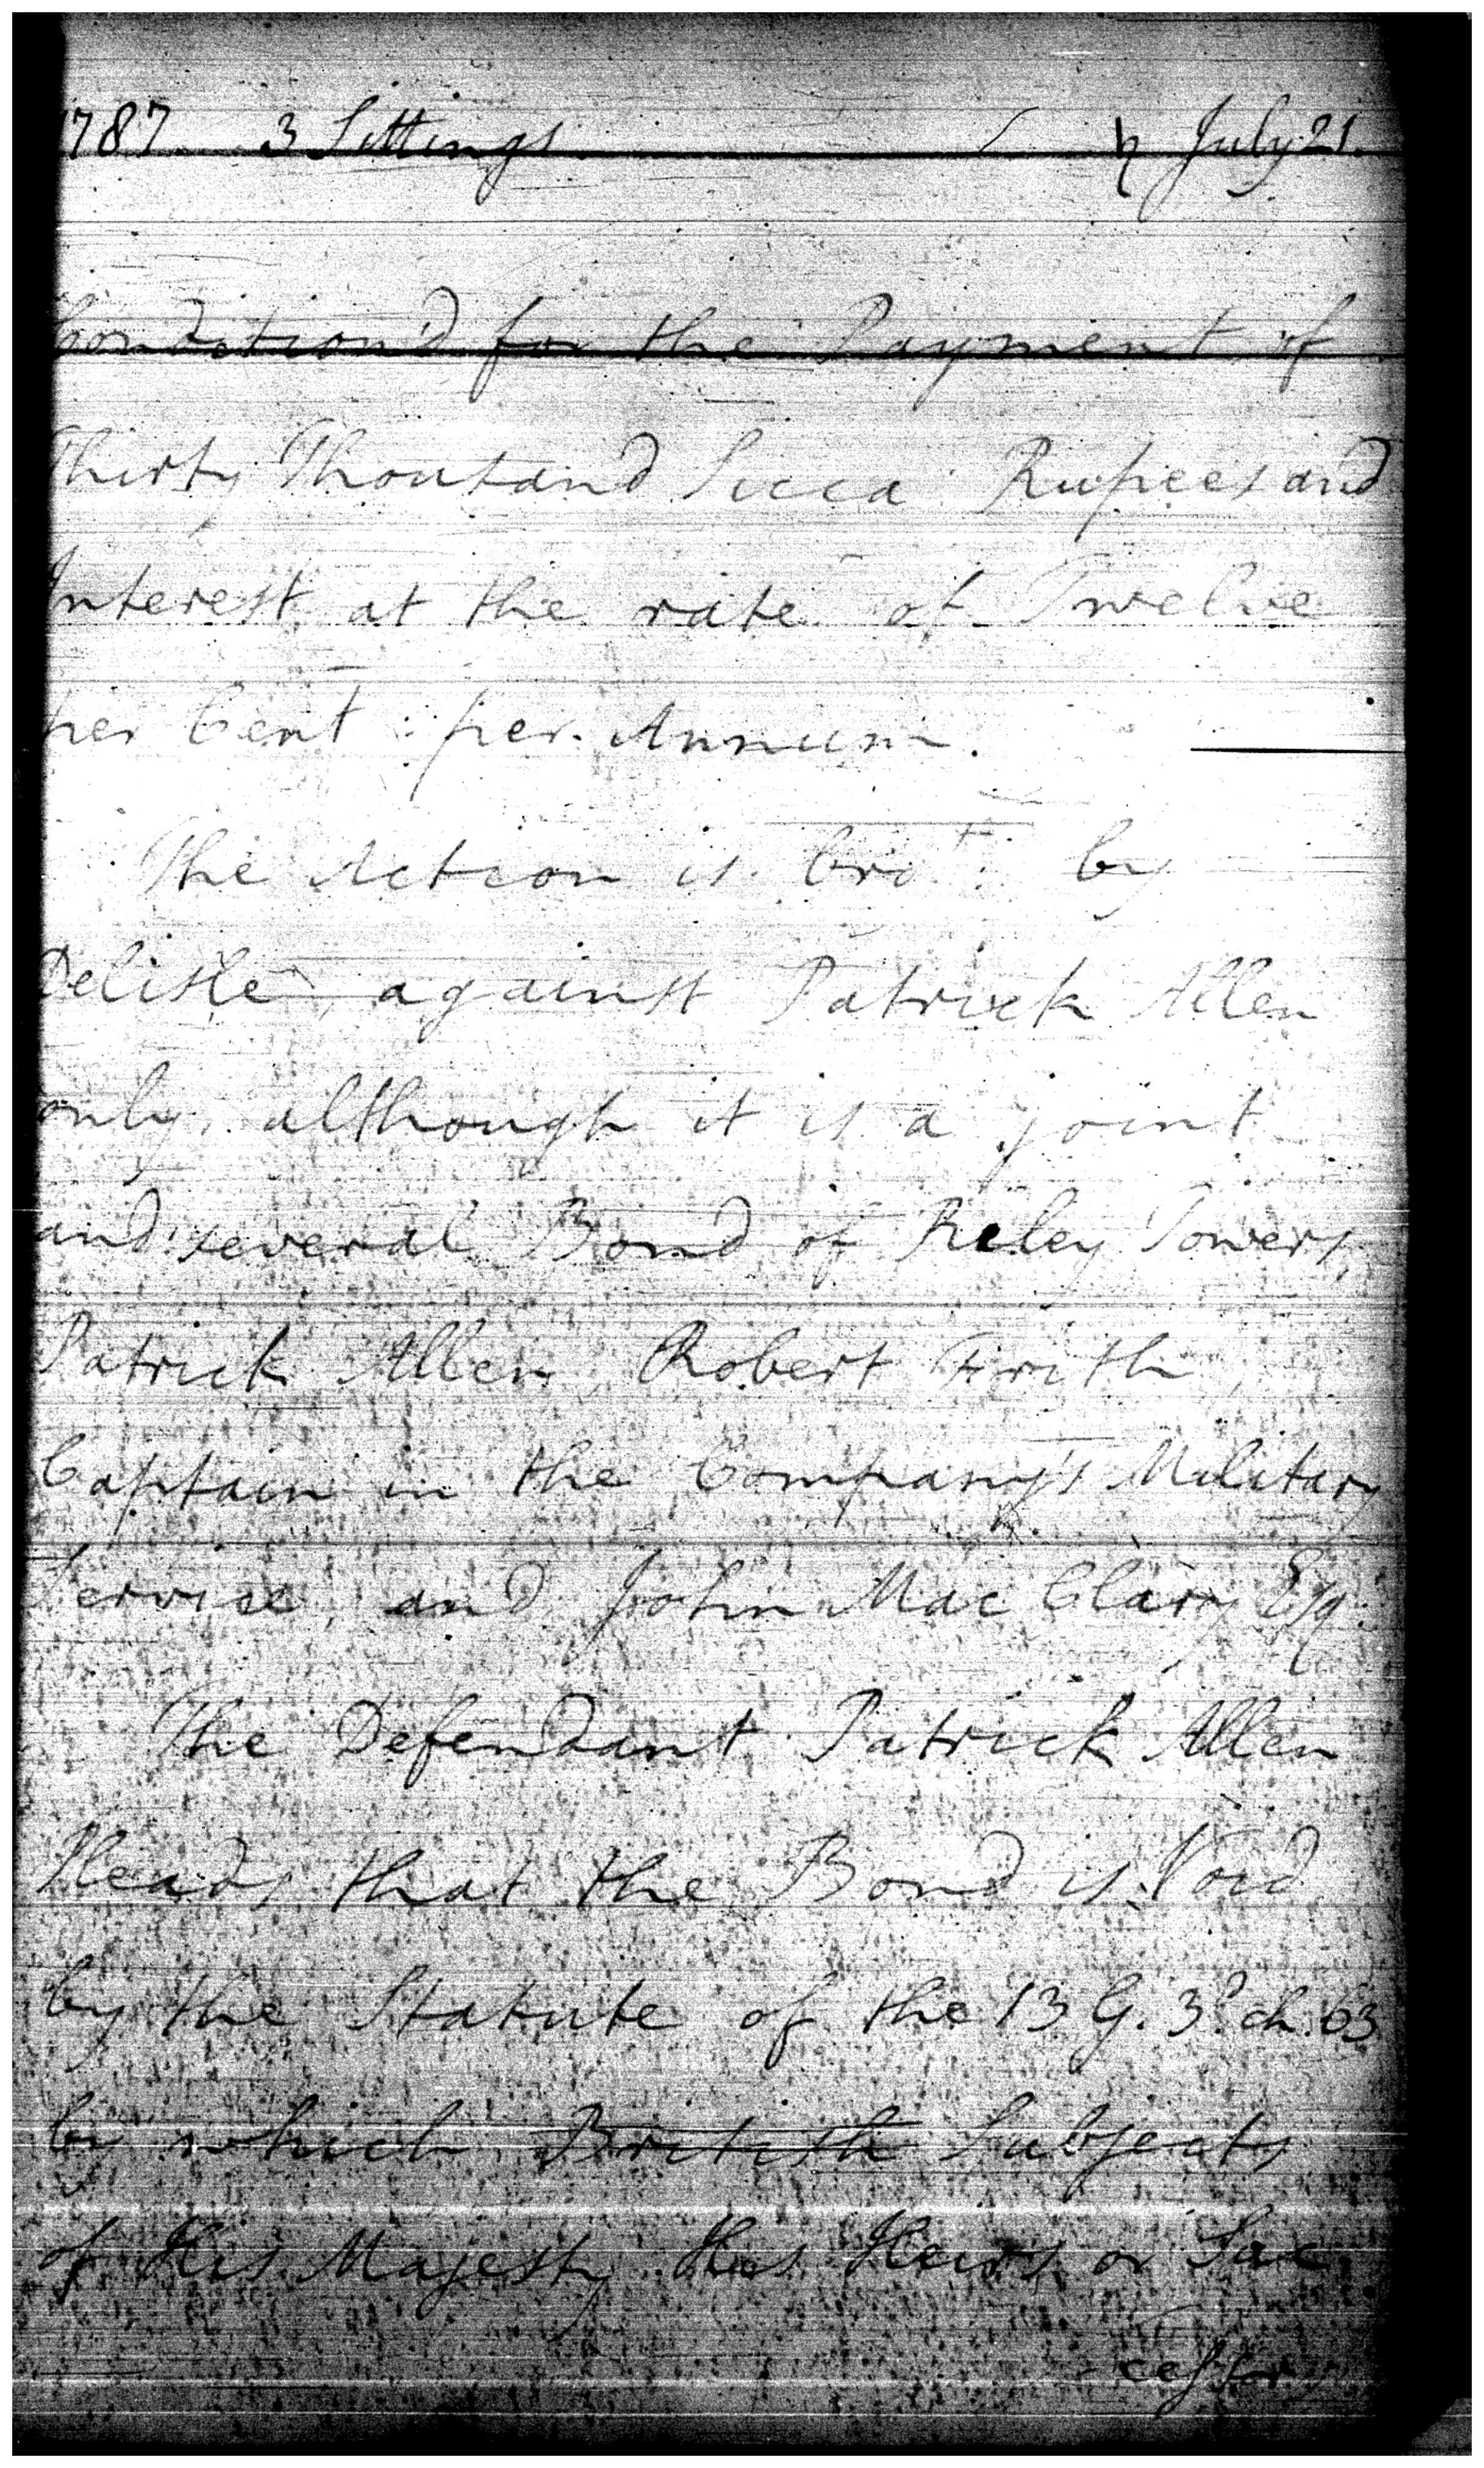 1787 3 Sittings ♄ July 21.
Condition'd for the Payment of
Thirty Thousand Sicca Rupees and
Interest at the rate of Twelve
per Cent : per Annum.
The Action is bro.t : by
Delisle, against Patrick Allen
only, although it is a joint
and several Bond of Reley Towers,
Patrick Allen, Robert Frith,
Captain in the Company's Military
Service, and John Mac Clary Esq.
The Defendant Patrick Allen
Pleads that the Bond is Void
by the Statute of the 13 G. 3.d ch. 63
by which British Subjects
of His Majesty His Heirs or Suc
cessor